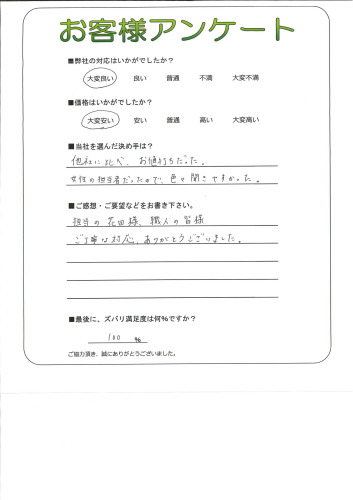 お客様アンケート
■弊社の対応はいかがでしたか?
大変良い 良い 普通 不満 大変不満
■価格はいかがでしたか?
大変安い 安い 普通 高い 大変高い
■当社を選んだ決め手は?
他社に比べ、お値打ちだった。
女性の担当者だったので、色々聞きやすかった。
■ご感想・ご要望などをお書き下さい。
担当の花田様、職人の皆様
ご丁寧な対応、ありがとうございました。
■最後に、ズバリ満足度は何%ですか?
100 %
ご協力頂き、誠にありがとうございました。